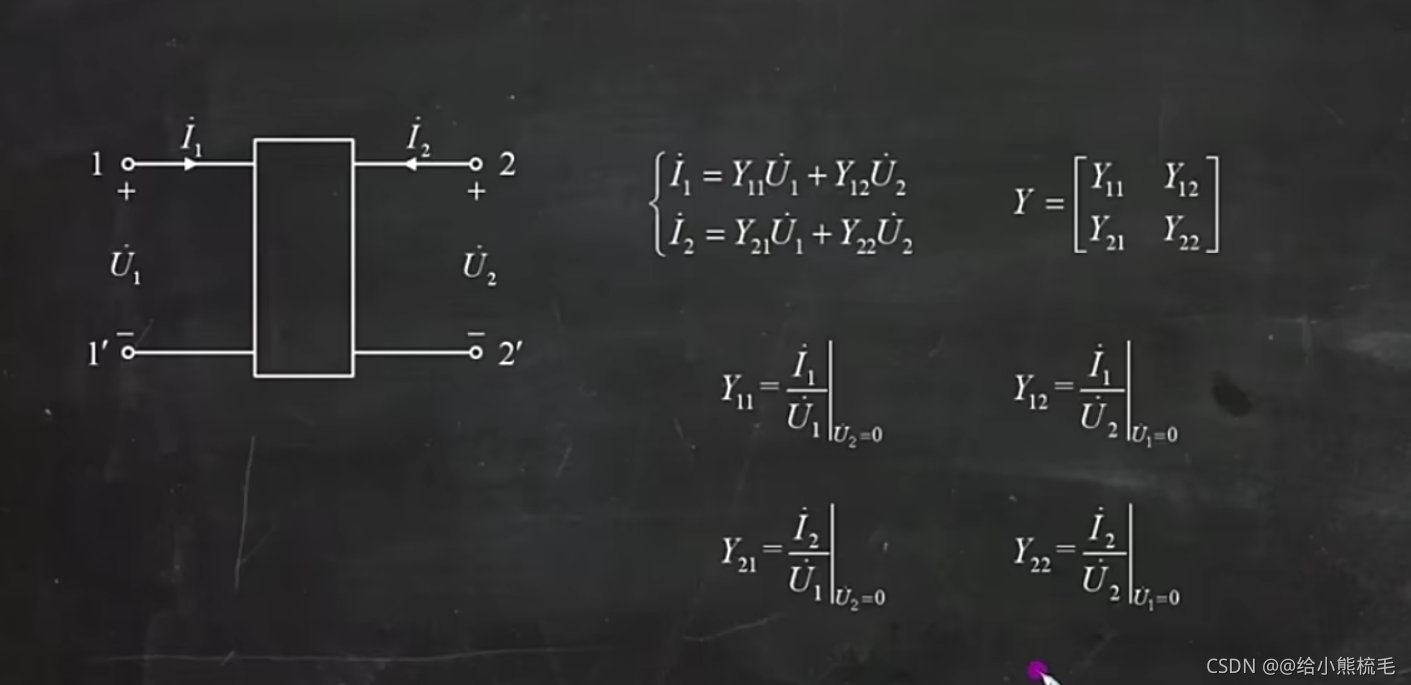 İ₁ İ₂
1 2
+ +
U̇₁ U̇₂
− −
1′ 2′
{ İ₁ = Y₁₁U̇₁ + Y₁₂U̇₂
İ₂ = Y₂₁U̇₁ + Y₂₂U̇₂
Y = [Y₁₁ Y₁₂
Y₂₁ Y₂₂]
Y₁₁ = İ₁/U̇₁ |U̇₂=0 Y₁₂ = İ₁/U̇₂ |U̇₁=0
Y₂₁ = İ₂/U̇₁ |U̇₂=0 Y₂₂ = İ₂/U̇₂ |U̇₁=0
CSDN @@给小熊梳毛